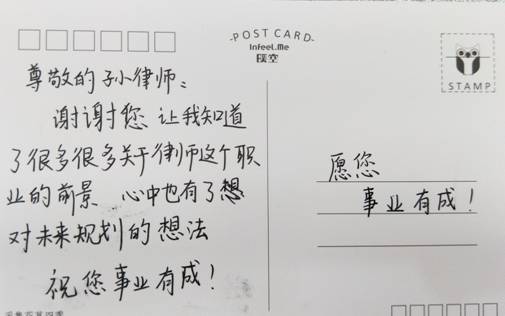 POST CARD
Infeel.Me
STAMP
尊敬的孙律师：
谢谢您 让我知道
了很多很多关于律师这个职
业的前景 心中也有了想
对未来规划的想法
祝您事业有成！
愿您
事业有成！